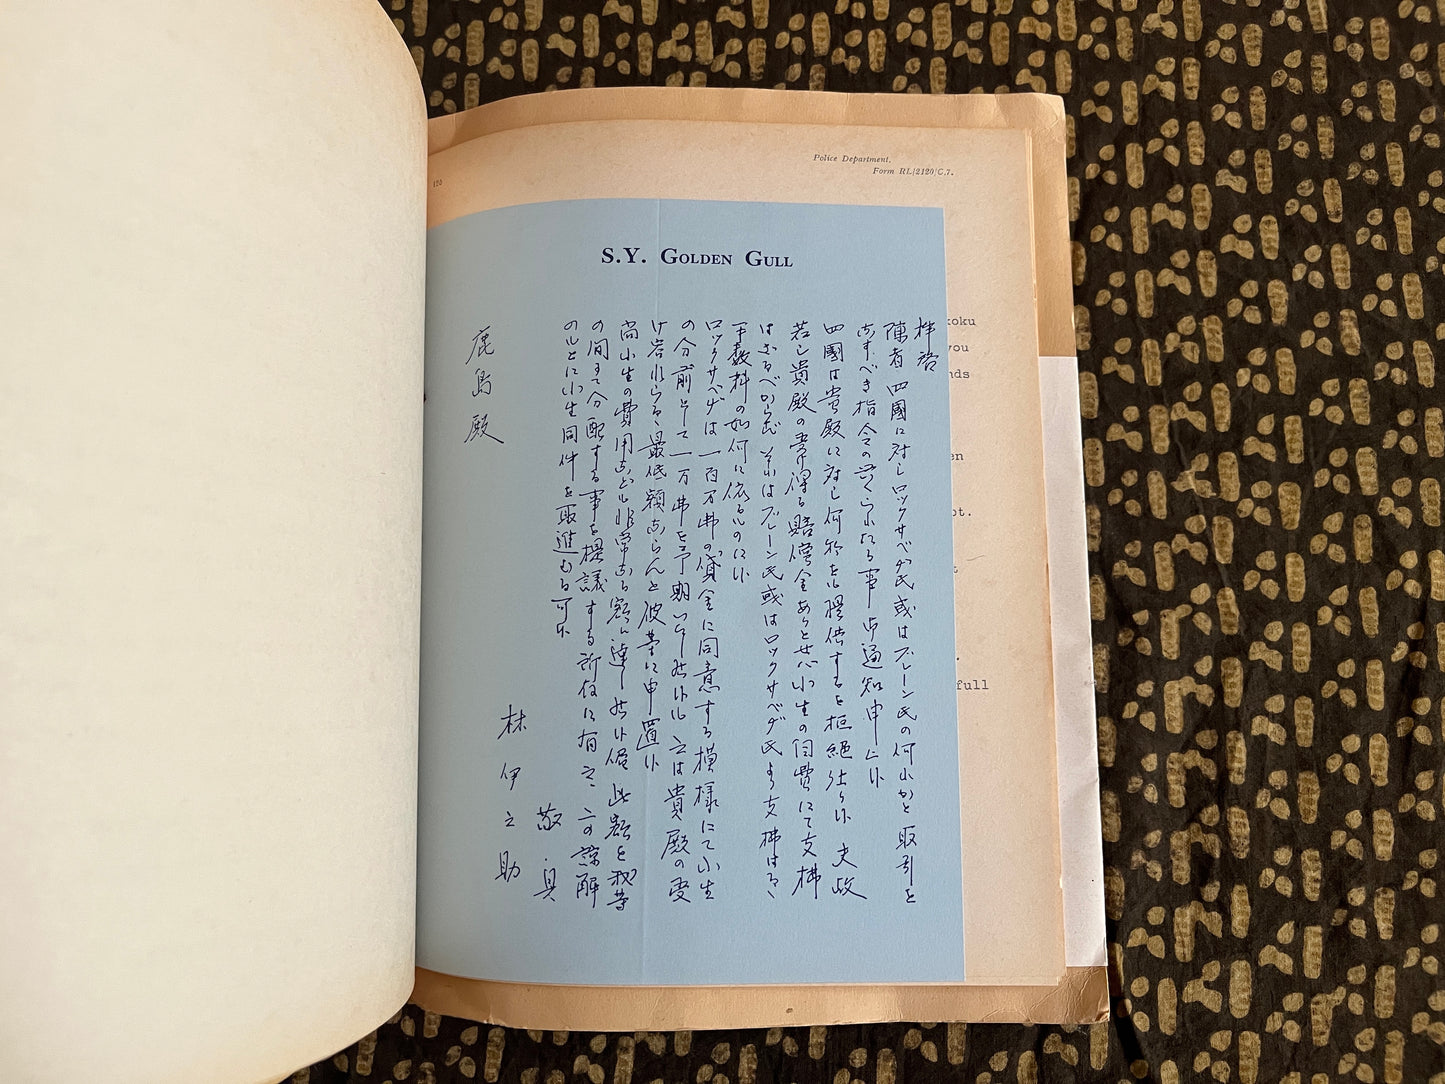 Police Department.
Form RL/2120/C.7.
120
S.Y. GOLDEN GULL
拝啓
陳者 四國に対しロックサベヂ氏或はブレーン氏の何れかと取引を
なすべき指令の与へられたる事御通知申上候
四國は貴殿に対し何物をも提供するを拒絶仕り候 夫故
若し貴殿の受け得る賠償金ありとせば小生の自費にて支拂
はざるべからず それはブレーン氏或はロックサベヂ氏より支拂はるゝ
手数料の如何に依るものに候
ロックサベヂは一百万弗の貸金に同意する模様にて小生
の分前として一万弗を予期いたし居り候 之は貴殿の受
け容れらるゝ最低額ならんと彼等に申置候
尚小生の費用なども非常なる額に達し居り候 此額を我等
の間にて分配する事を提議する所存に有之、この諒解
のもとに小生同件を取進むる可候
敬具
林 伊之助
鹿島殿
koku
you
nds
en
pt.
t
full